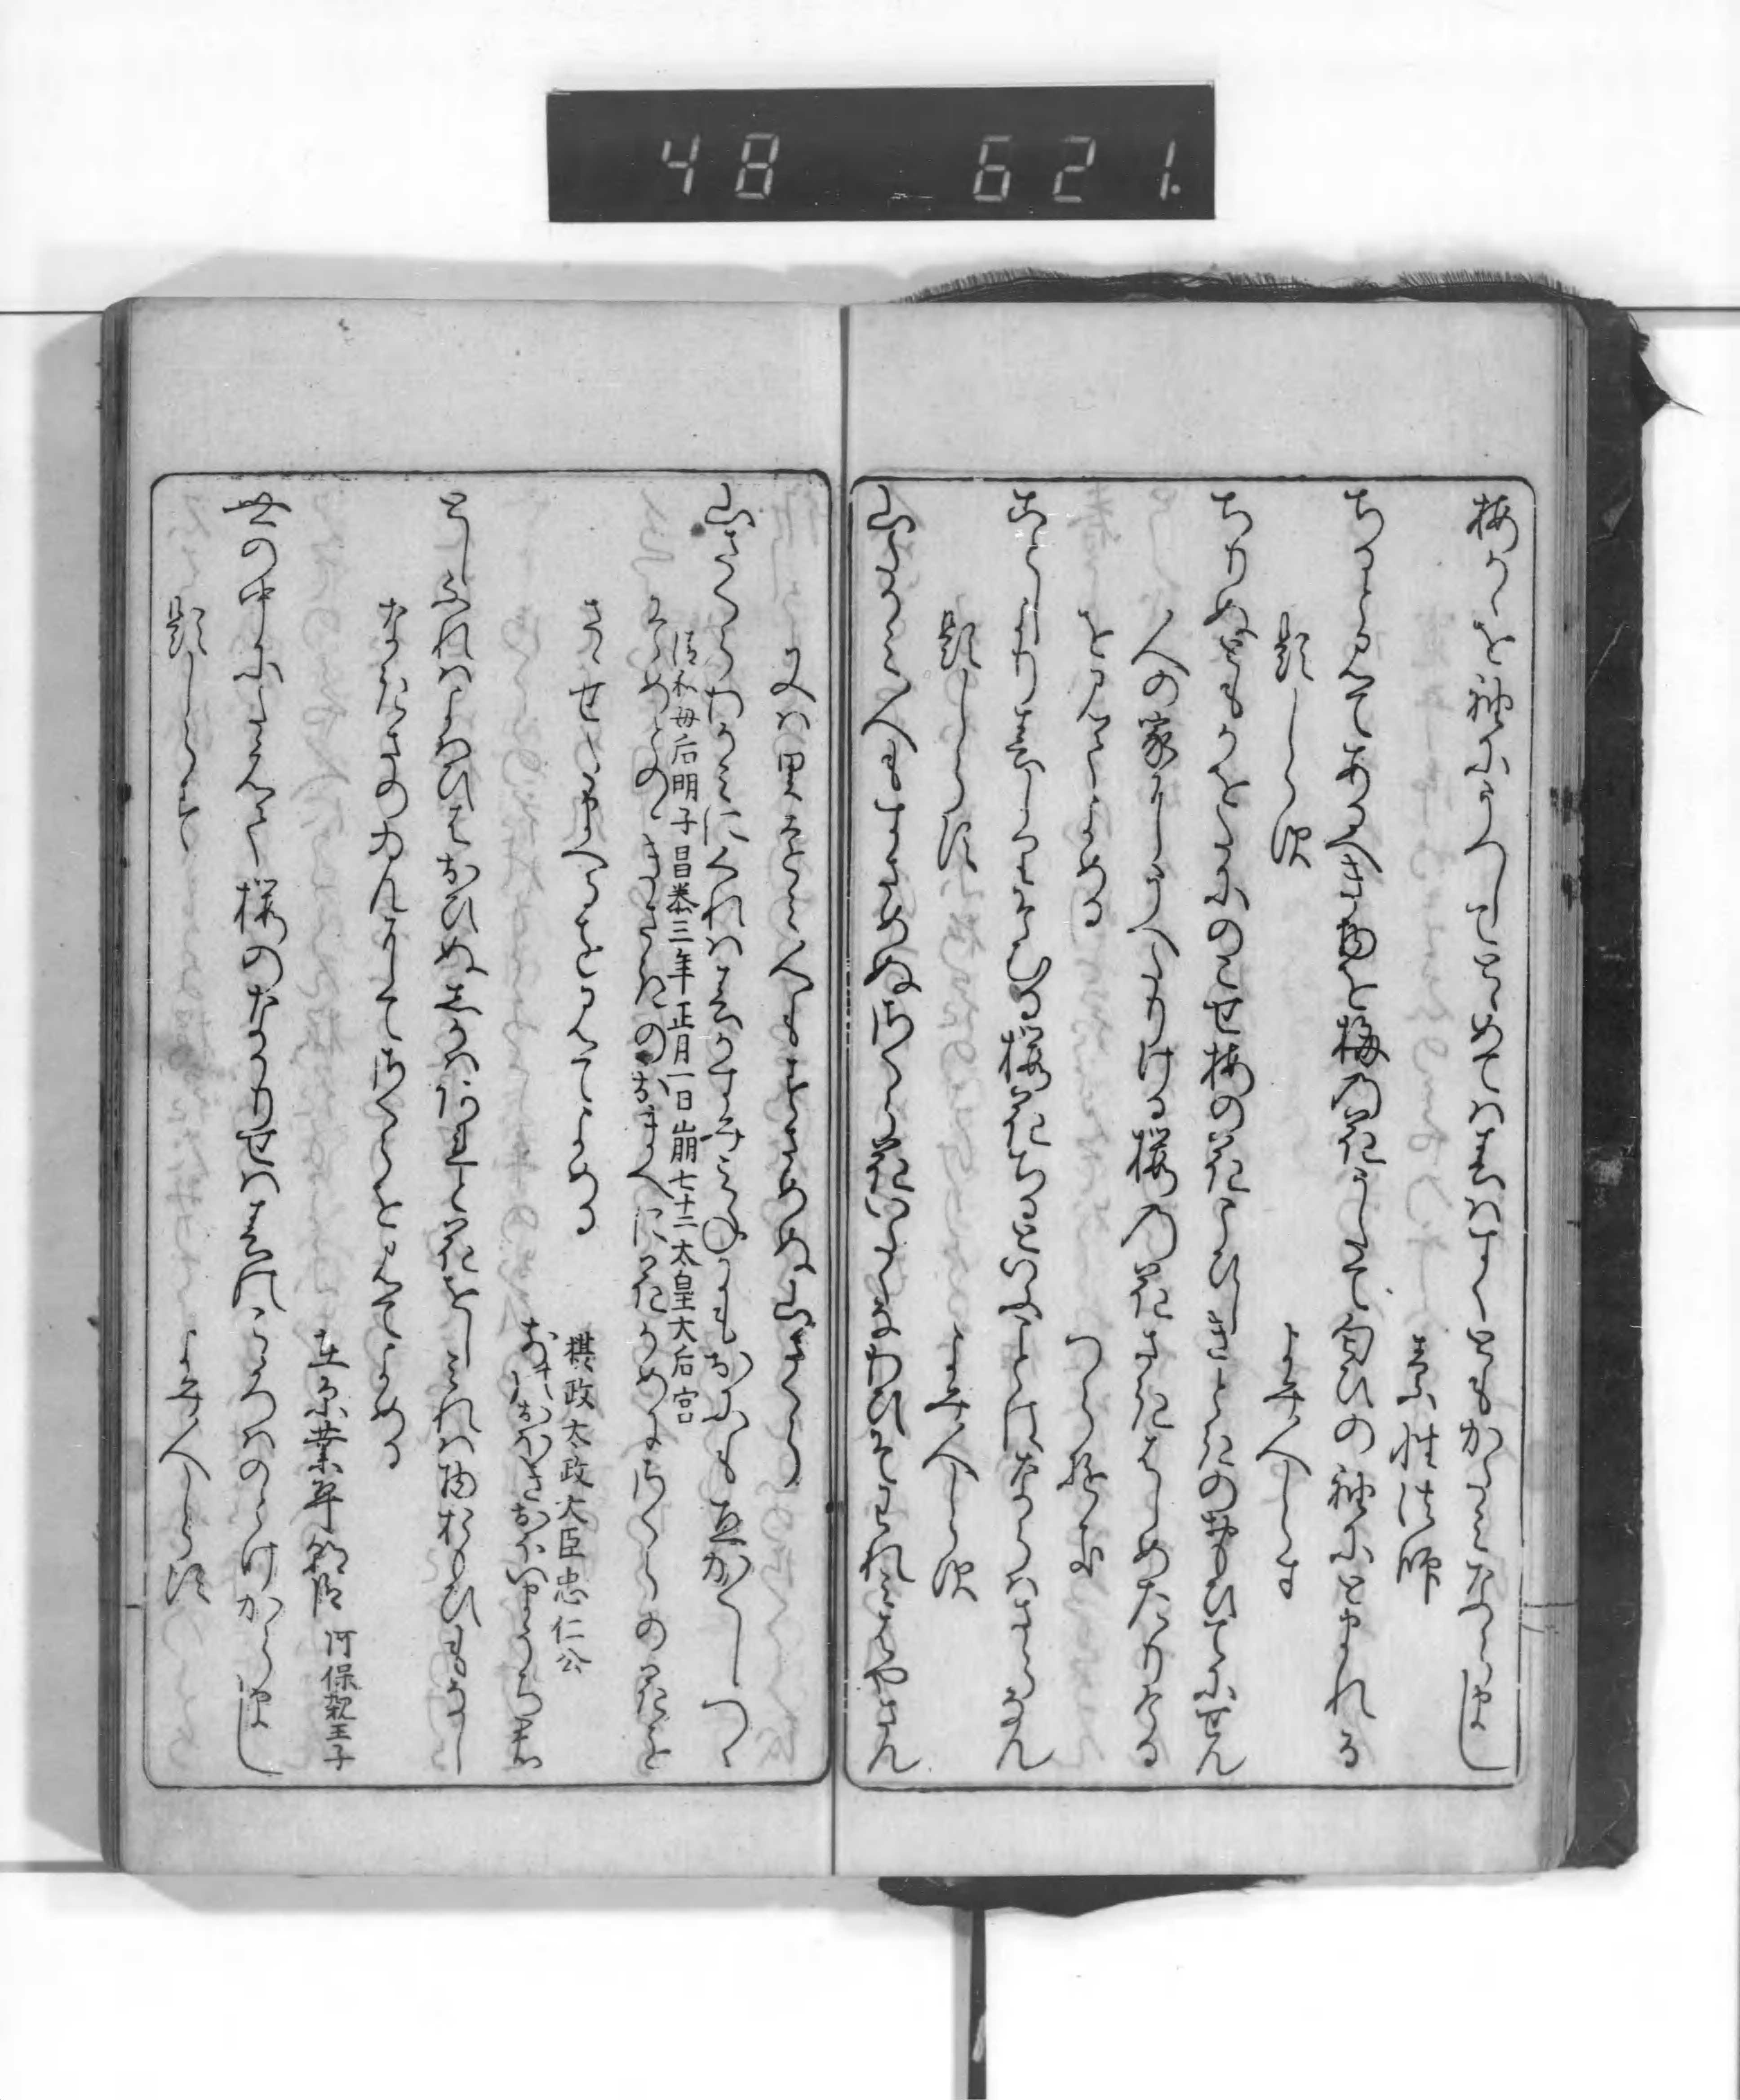 48 621.
梅かゝを袖にうつしてとゝめては春はすくともかたみならまし
素性法師
ちるとみてあるへき物を梅の花うたて匂ひの袖にとまれる
題しらす よみ人しらす
ちりぬともかをたにのこせ梅の花こひしきときのおもひてにせん
人の家にうへたりける桜の花さきはしめたりける
をみてよめる つらゆき
ことしより春しりそむる桜花ちるといふことはならはさらなん
題しらす よみ人しらす
山たかみ人もすさめぬさくら花いたくなわひそわれみはやさん
又は里とをみ人もすさめぬ山さくら
山さくらわかみにくれは春かすみみねにもおにも立かくしつゝ
そめとのゝきさきのおまへに花かめにさくらの花を
清和母后明子昌泰三年正月一日崩七十二太皇大后宮
さゝせたまへるをみてよめる
摂政太政大臣忠仁公
さきのおほきおほいまうちきみ
としふれはよはひはおひぬしかはあれと花をしみれは物おもひもなし
なきさの院にてさくらをみてよめる
在原業平朝臣 阿保親王子
世の中にたえて桜のなかりせは春の心はのとけからまし
題しらす よみ人しらす